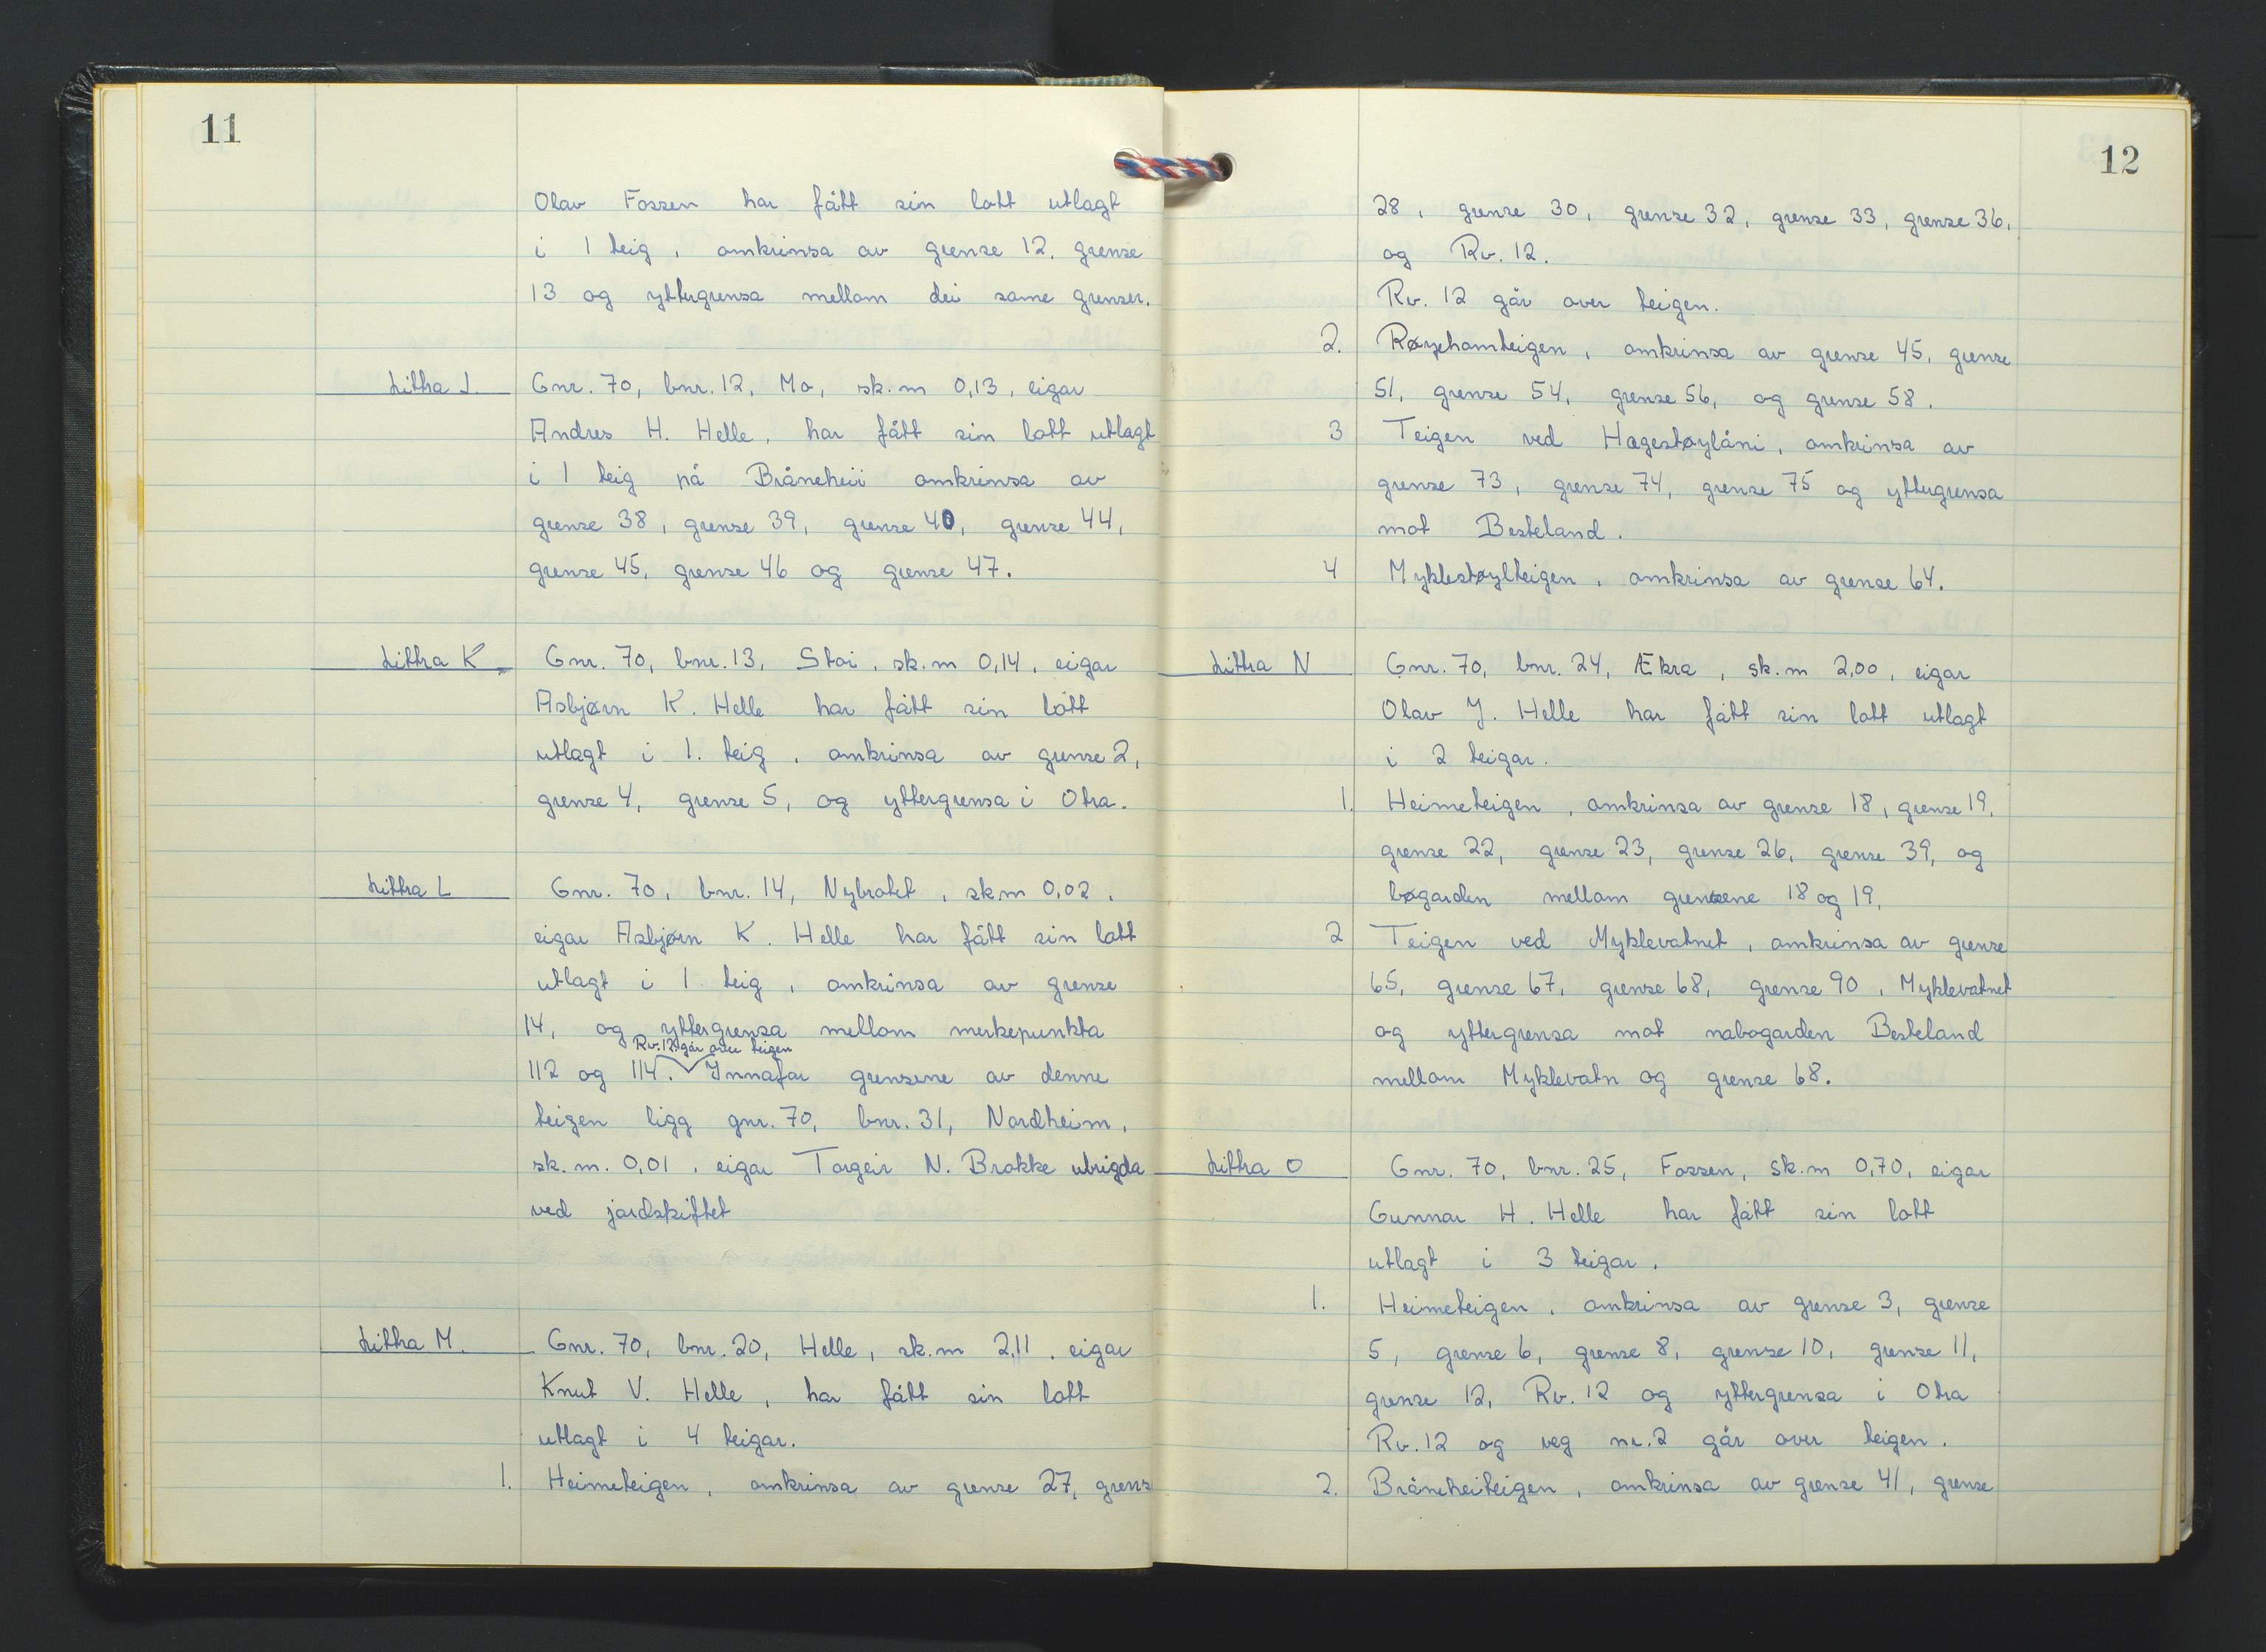 11
Olav Fossen har fått sin lott utlagt
i 1 teig, omkrinsa av grense 12, grense
13 og yttergrensa mellom dei same grenser.
Littra J. Gnr. 70, bnr. 12, Mo, sk.m 0,13, eigar
Andres H. Helle, har fått sin lott utlagt
i 1 teig på Bråneheii omkrinsa av
grense 38, grense 39, grense 40, grense 44,
grense 45, grense 46 og grense 47.
Littra K Gnr. 70, bnr. 13, Stoi, sk.m 0,14, eigar
Asbjørn K. Helle har fått sin lott
utlagt i 1. teig, omkrinsa av grense 2,
grense 4, grense 5, og yttergrensa i Otra.
Littra L Gnr. 70, bnr. 14, Nybrotet, sk.m 0,02.
eigar Asbjørn K. Helle har fått sin lott
utlagt i 1 teig, omkrinsa av grense
14, og yttergrensa mellom merkepunkta
Rv. 12 går over teigen
112 og 114. Innafor grensene av denne
teigen ligg gnr. 70, bnr. 31, Nordheim,
sk.m. 0,01, eigar Torgeir N. Brokke ubrigda
ved jordskiftet
Littra M. Gnr. 70, bnr. 20, Helle, sk.m 2,11. eigar
Knut V. Helle, har fått sin lott
utlagt i 4 teigar.
1. Heimeteigen, omkrinsa av grense 27, grense
12
28, grense 30, grense 32, grense 33, grense 36,
og Rv. 12.
Rv. 12 går over teigen.
2. Røyehomteigen, omkrinsa av grense 45, grense
51, grense 54, grense 56, og grense 58.
3 Teigen ved Hagestøylåni, omkrinsa av
grense 73, grense 74, grense 75 og yttergrensa
mot Besteland.
4 Myklestøylteigen, omkrinsa av grense 64.
Littra N Gnr. 70, bnr. 24, Ækra, sk.m 2,00, eigar
Olav J. Helle har fått sin lott utlagt
i 2 teigar.
1. Heimeteigen, omkrinsa av grense 18, grense 19,
grense 22, grense 23, grense 26, grense 39, og
bøgarden mellom grensene 18 og 19.
2 Teigen ved Myklevatnet, omkrinsa av grense
65, grense 67, grense 68, grense 90, Myklevatnet
og yttergrensa mot nabogarden Besteland
mellom Myklevatn og grense 68.
Littra O Gnr. 70, bnr. 25, Fossen, sk.m 0,70, eigar
Gunnar H. Helle har fått sin lott
utlagt i 3 teigar.
1. Heimeteigen, omkrinsa av grense 3, grense
5, grense 6, grense 8, grense 10, grense 11,
grense 12, Rv. 12 og yttergrensa i Otra
Rv. 12 og veg nr. 2 går over teigen.
2. Bråneheiteigen, omkrinsa av grense 41, grense